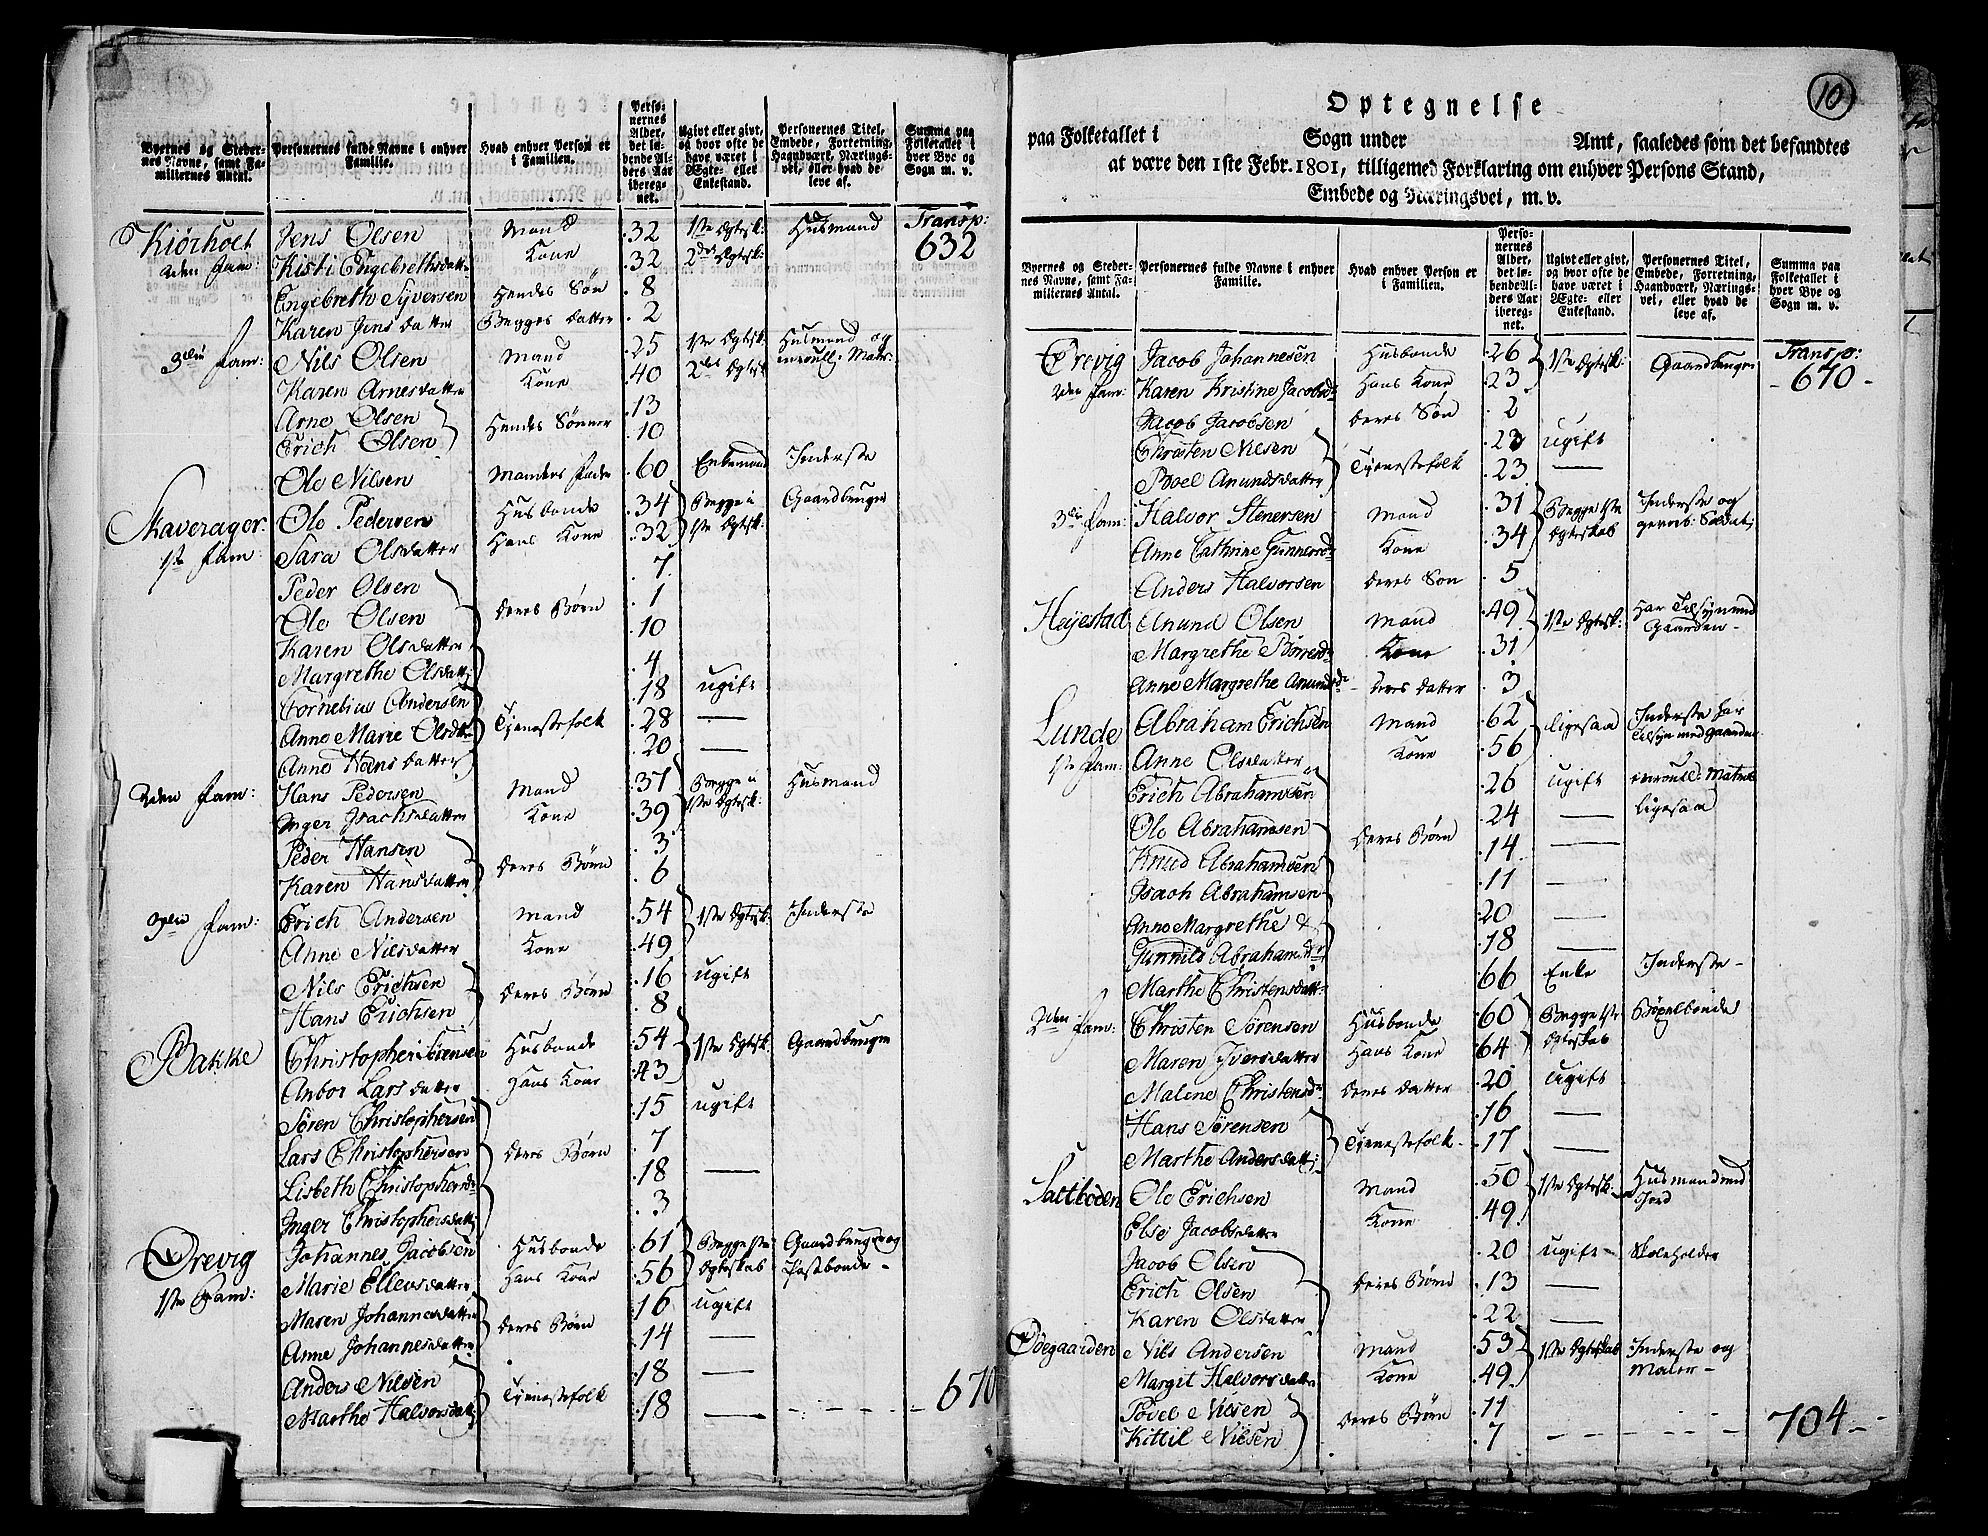 Byernes og Steder-
nes Navne, samt Fa-
miliernes Antal.
Personernes fulde Navne i enhver
Familie.
Hvad enhver Person er
i Familien.
Perso-
nernes
Alder,
det lø-
bende Al-
ders Aar
ibereg-
net.
Ugivt eller givt,
og hvor ofte de
have været i
Ægte- eller
Enkestand.
Personernes Titel,
Embede, Forretning,
Haandværk, Nærings-
vei, eller hvad de
leve af.
Summa paa
Folketallet i
hver Bye og
Sogn m. v.
Transp:
632
Kiörholt Jens Olsen Mand 32 1ste Ægtesk: Husmand
2den fam: Kisti Engebrethsdatter Kone 32 2det Ægtesk:
Engebreth Syversen Hendes Søn 8
Karen Jens datter Begges datter 2
3die fam: Nils Olsen Mand 25 1ste Ægtesk: Husmand og
enroull: Matr:
Karen Arnesdatter Kone 40 2det Ægtesk
Arne Olsen Hendes Sønner 13
Erich Olsen 10
Olo Nilsen Mandens fader 60 Enkemand Inderste
Skaverager Olo Pedersen Husbonde 34 Begge i Gaardbruger
1ste fam: Sara Olsdatter Hans Kone 32 1ste Ægtesk:
Peder Olsen 7
Olo Olsen deres Børn 1
Karen Olsdatter 10
Margrethe Olsdatt: 4
Cornelius Andersen 18 ugift
Anne Marie Olsdttr Tjenestefolk 28 —
Anne Hans datter 20 —
2den fam: Hans Pedersen Mand 37 Begge i Husmand
Inger Isachsdatter Kone 39 1ste Ægtesk:
Peder Hansen 3
Karen Hansdatter deres Børn 6
3die fam: Erich Andersen Mand 54 1ste Ægtesk: Inderste
Anne Nilsdatter Kone 49
Nils Erichsen 16 ugift
Hans Erichsen deres Børn 8
Bakke Christopher Sørensen Husbonde 54 1ste Ægtesk. Gaardbruger
Anbor Lars datter Hans Kone 43
Søren Christophersen 15 ugift
Lars Christophersen deres Børn 7
Lisbeth Christophersdr 18 —
Inger Christophersdatt: 3
Ørevig Johannes Jacobsen Husbonde 61 Begge 1ste Gaardbruger og
1ste Fam: Marie Ellevsdatter Hans Kone 56 Ægteskab Postbonde -
Maren Johannesdatter 16 ugift
Anne Johannesdatter deres Børn 14 —
Anders Nilsen 18 —
Marthe Halvorsdatt: Tjenestefolk 18 — 670
10
Optegnelse
paa Folketallet i Sogn under Amt, saaledes som det befandtes
at være den 1ste Febr. 1801, tilligemed Forklaring om enhver Persons Stand,
Embede og Næringsvei, m. v.
Byernes og Steder-
nes Navne, samt Fa-
miliernes Antal.
Personernes fulde Navne i enhver
Familie.
Hvad enhver Person er
i Familien.
Perso-
nernes
Alder,
det lø-
bende Al-
ders Aar
ibereg-
net.
Ugivt eller givt,
og hvor ofte de
have været i
Ægte- eller
Enkestand.
Personernes Titel,
Embede, Forretning,
Haandværk, Nærings-
vei, eller hvad de
leve af.
Summa paa
Folketallet i
hver Bye og
Sogn m. v.
Transp:
- 670 -
Ørevig Jacob Johannesen Husbonde 26 1ste Ægtesk: Gaardbruger
2den fam: Karen Kristine Jacobsdr Hans Kone 23
Jacob Jacobsen deres Søn 2
Christen Nilsen 23 ugift
Povel Anundsdatter Tjenestefolk 23 —
3die fam: Halvor Stenersen Mand 31 Begge 1ste Inderste og
gevorb: Soldat
Anne Cathrine Gunnersdr Kone 34 Ægteskab
Anders Halvorsen deres Søn 5
Høyestad Anund Olsen Mand 49 1ste Ægtesk: Har Tilsyn med
Gaarden -
Margrethe Børresdr Kone 31
Anne Margrethe Anundsdr deres datter 3
Lunde Abraham Erichsen Mand 62 ligesaa Inderste har
Tilsyn med gaarden
1ste fam: Anne Olsdatter Kone 56
Erich Abrahamsen 26 ugift enroull: Matros
Olo Abrahamsen 24 — ligesaa
Knud Abrahamsen deres Børn 14 —
Isach Abrahamsen 11 —
Anne Margrethe & 20 —
Gunnild Abrahamsdr 18 —
Marthe Christensdatt: 66 Enke Inderste -
2den fam: Christen Sørensen Husbonde 60 Begge 1ste Bøxelbonde
Maren Iversdatter Hans Kone 64 Ægteskab
Malene Christensdr deres datter 20 Ugift
Hans Sørensen 16 —
Marthe Andersdatt: Tjenestefolk - 17 —
Saltboden Olo Erichsen Mand 50 1ste Ægtesk: Husmand med
Jord
Else Jacobsdatter Kone 49
Jacob Olsen 20 ugift - Skoleholder
Erich Olsen deres Børn 13 —
Karen Olsdatter 22 —
Ødegaarden Nils Andersen Mand 53 1ste Ægteskab Inderste og
Maler -
Margit Halvorsdatter Kone 49
Povel Nilsen deres Børn 11
Kittil Nilsen 7 704 -